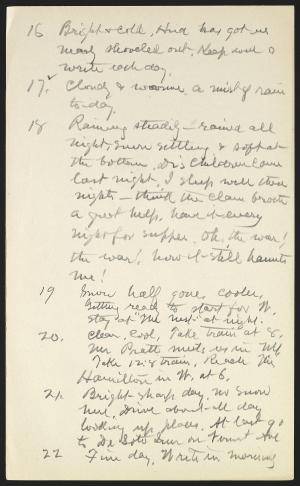 16 Bright & cold, Hud has got us
nearly shoveled out. Keep well &
write each day.
17. Cloudy & warm, a mist of rain
to-day.
18 Raining steadily – rained all
night, snow settling & soft at
the bottom. D's children came
last night. I sleep well these
nights – think the clam broth
a great help, have it every
night for supper. Oh, the war!
the war! how it still haunts
me!
19 Snow half gone, cooler,
Getting ready to start for W.
stay at "The Nest" at night.
20. Clear, cool, Take train at 8.
Mr Pratt meets us in
Take 12:8 train, Reach The
Hamilton in W. at 6.
21. Bright sharp day, no snow
here. Drive about all day
looking up places. At last go
to De Soto Inn on Ave
22 Fine day, Write in morning